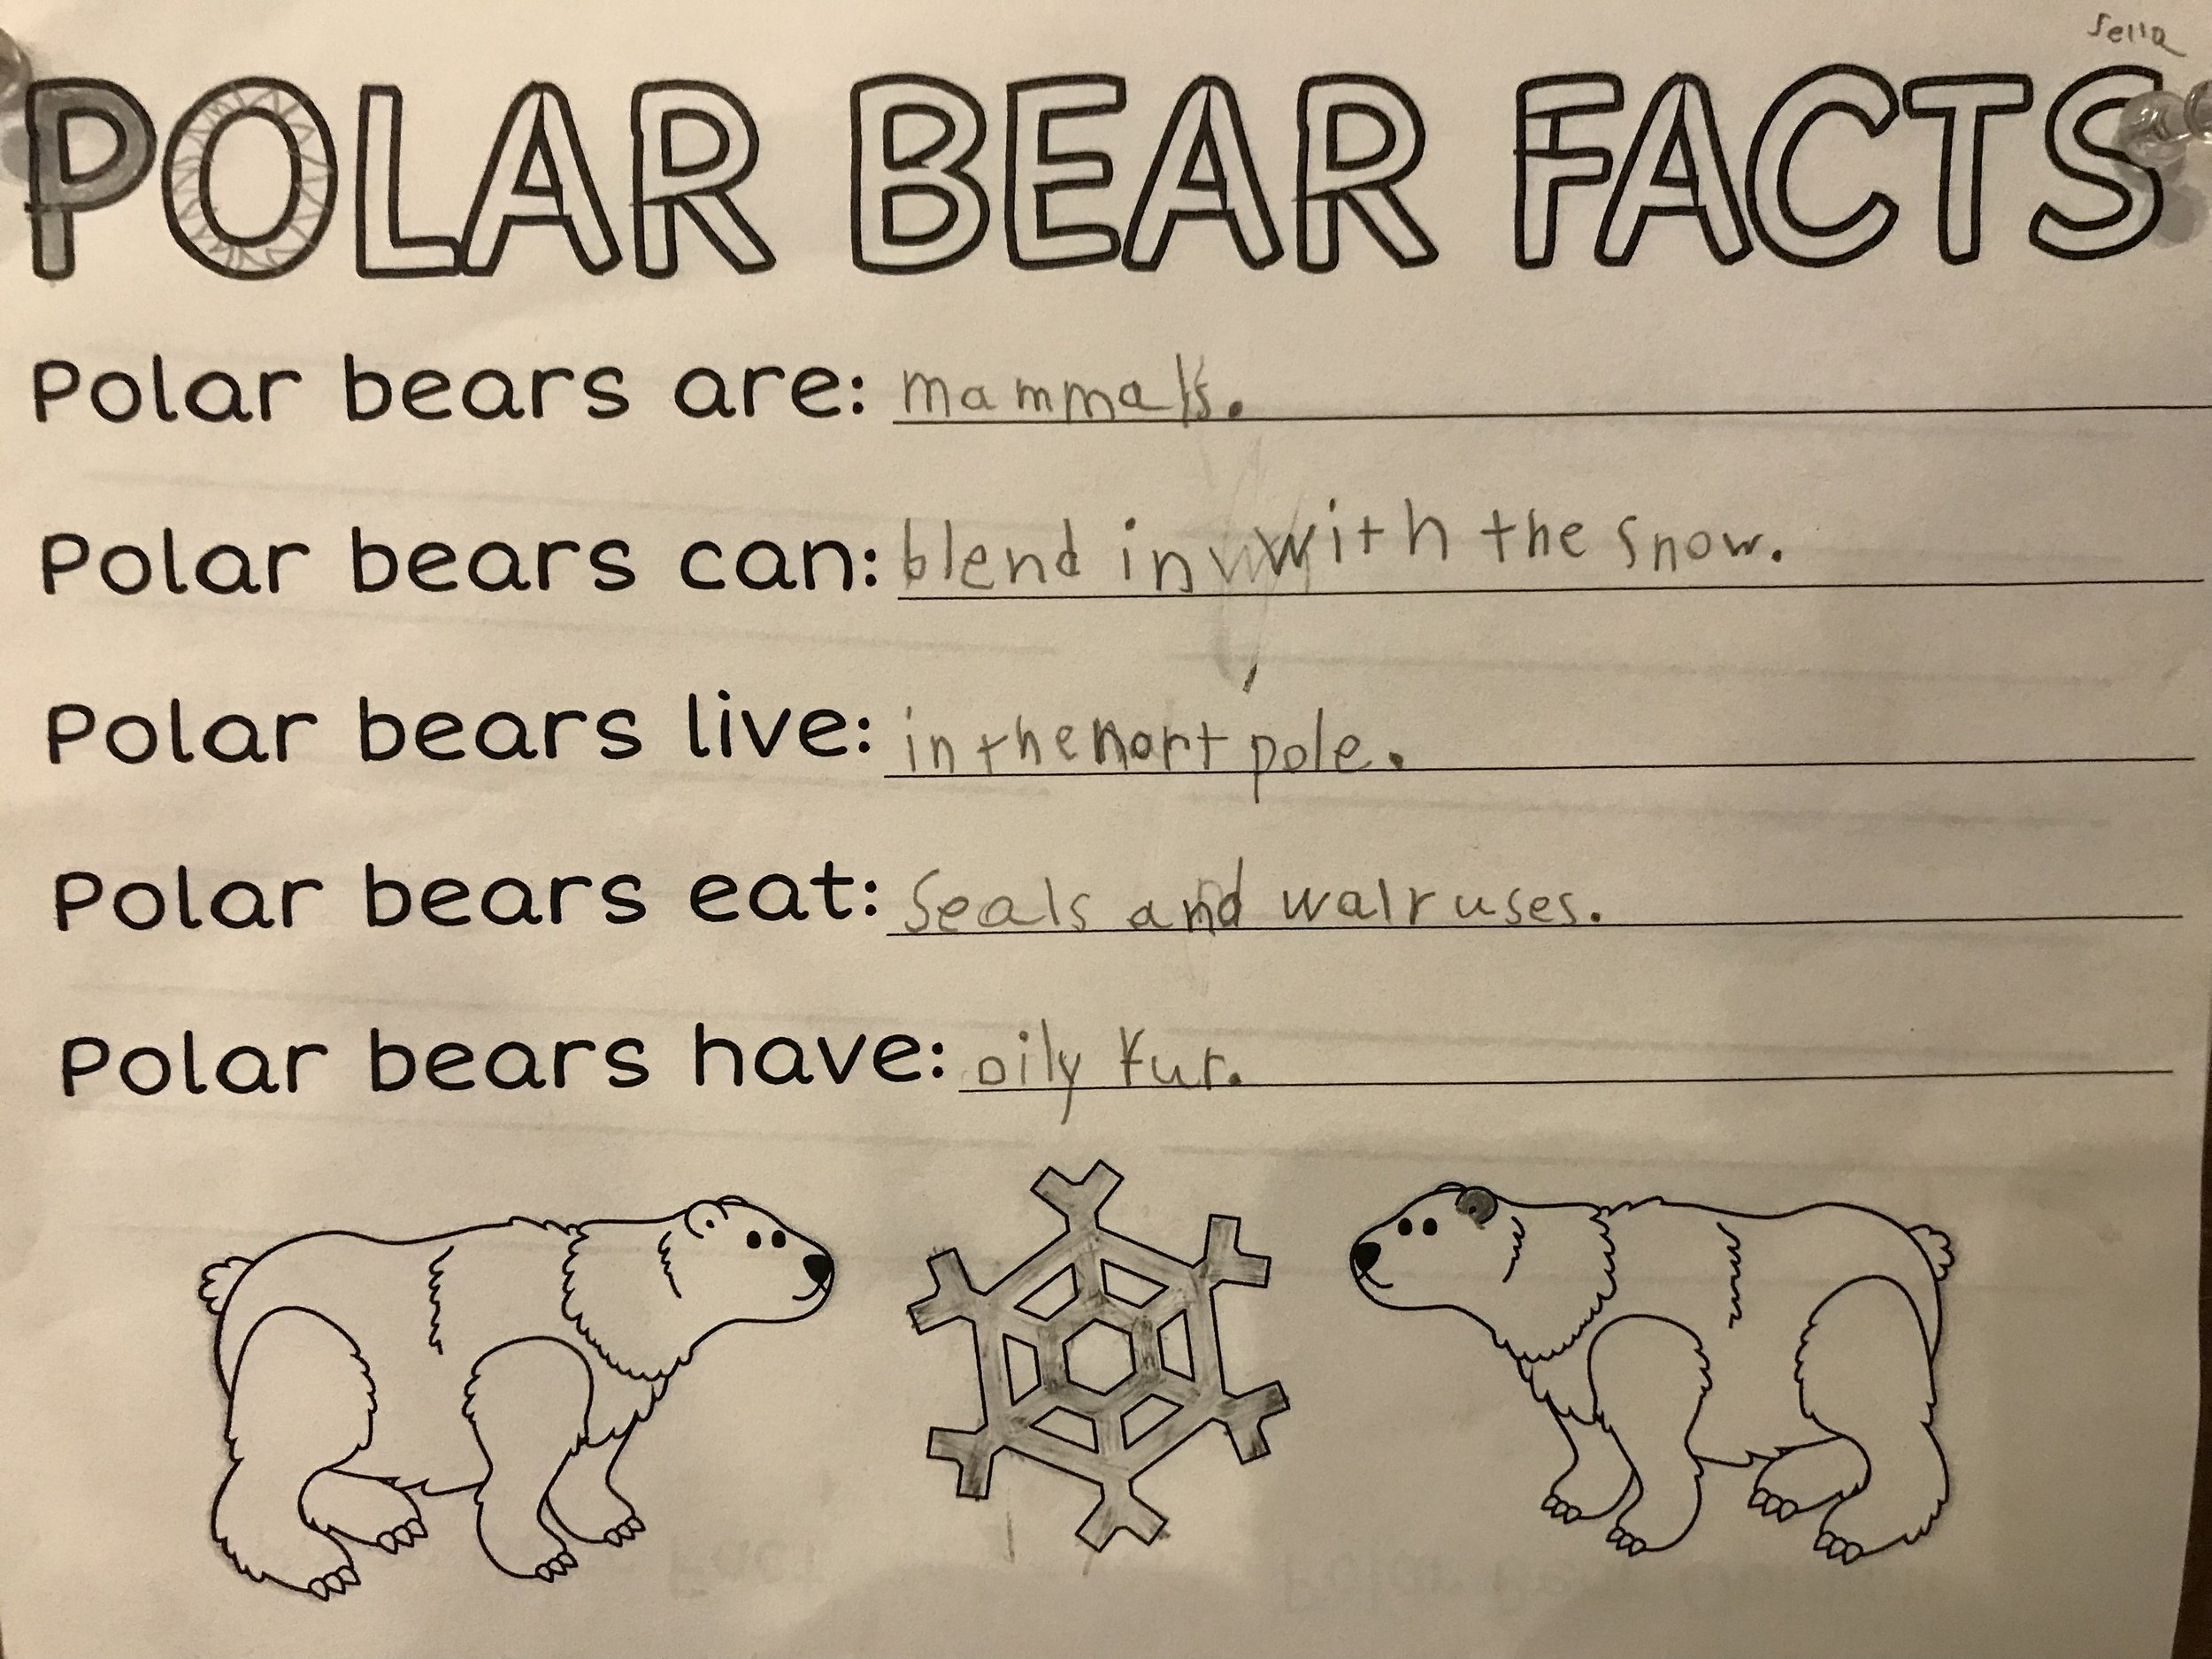 Sella
POLAR BEAR FACTS
Polar bears are: mammals.
Polar bears can: blend in with the snow.
Polar bears live: in the nort pole.
Polar bears eat: Seals and walruses.
Polar bears have: oily fur.